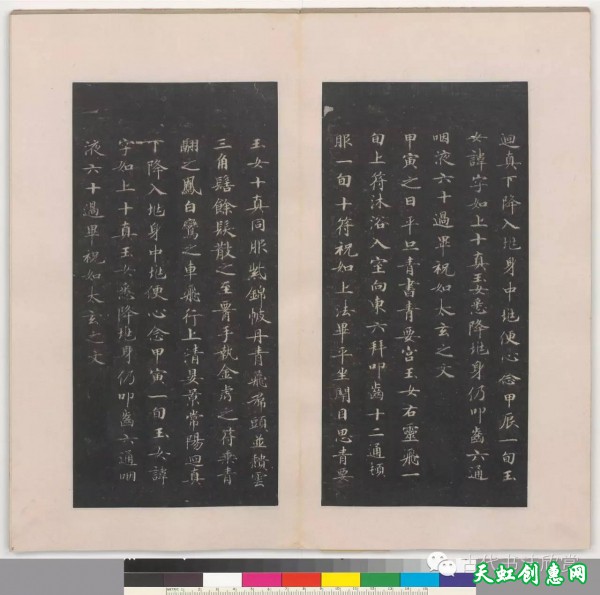 迴真下降入兆身中兆便心念甲辰一旬玉
女諱字如上十真玉女悉降兆身仍叩齒六通
咽液六十過畢祝如太玄之文
甲寅之日平旦青書青要宮玉女右靈飛一
旬上符沐浴入室向東六拜叩齒十二通頓
服一旬十符祝如上法畢平坐閉目思青要
玉女十真同服紫錦帔丹青飛裙頭並頹雲
三角髻餘髮散之至腰手執金虎之符乘青
翮之鳳白鸞之車飛行上清晏景常陽迴真
下降入兆身中兆便心念甲寅一旬玉女諱
字如上十真玉女悉降兆身仍叩齒六通咽
液六十過畢祝如太玄之文
古代书法欣赏
天虹创惠网